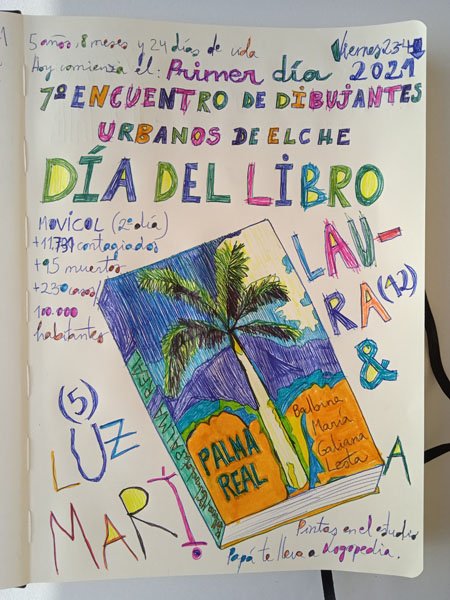 5 años, 8 meses y 24 días de vida
Viernes 23-4-
Hoy comienza el: Primer día 2021
7º ENCUENTRO DE DIBUJANTES
URBANOS DE ELCHE
DÍA DEL LIBRO
MOVICOL (2º día)
+11.731 contagiados
+95 muertos
+230 casos/
100.000
habitantes
LAU-
RA (12)
&
(5)
LUZ
MARÍA
PALMA
REAL
Balbina
María
Galiana
Lesta
PALMA REAL
Pintas en el estudio
Papá te lleva a Logopedia.